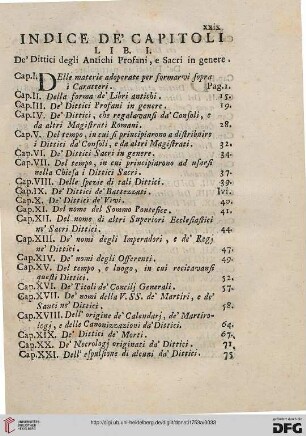 xxix
INDICE DE' CAPITOLI
LIB. I.
De' Dittici degli Antichi Profani, e Sacri in genere.
Cap.I. DElle materie adoperate per formarvi sopra
i Caratteri. Pag.1.
Cap.II. Della forma de' Libri antichi. 15.
Cap.III. De' Dittici Profani in genere. 19.
Cap.IV. De' Dittici, che regalavansi da' Consoli, e
da altri Magistrati Romani. 28.
Cap.V. Del tempo, in cui si principiarono a distribuire
i Dittici da' Consoli, e da altri Magistrati. 32.
Cap.VI. De' Dittici Sacri in genere. 34.
Cap.VII. Del tempo, in cui principiarono ad usarsi
nella Chiesa i Dittici Sacri. 37.
Cap.VIII. Delle spezie di tali Dittici. 39.
Cap.IX. De' Dittici de' Battezzati. ivi.
Cap.X. De' Dittici de' Vivi. 40.
Cap.XI. Del nome del Sommo Pontefice. 41.
Cap.XII. Del nome di altri Superiori Ecclesiastici
ne' Sacri Dittici. 44.
Cap.XIII. De' nomi degli Imperadori, e de' Regj
ne' Dittici. 47.
Cap.XIV. De' nomi degli Offerenti. 49.
Cap.XV. Del tempo, e luogo, in cui recitavansi
questi Dittici. 52.
Cap.XVI. De' Titoli de' Concilj Generali. 57.
Cap.XVII. De' nomi della V.SS. de' Martiri, e de'
Santi ne' Dittici. 58.
Cap.XVIII. Dell' origine de' Calendarj, de' Martiro-
logj, e delle Canonizzazioni da' Dittici. 64.
Cap.XIX. De' Dittici de' Morti. 67.
Cap.XX. De' Necrologj originati da' Dittici. 71.
Cap.XXI. Dell' espulsione di alcuni da' Dittici. 75